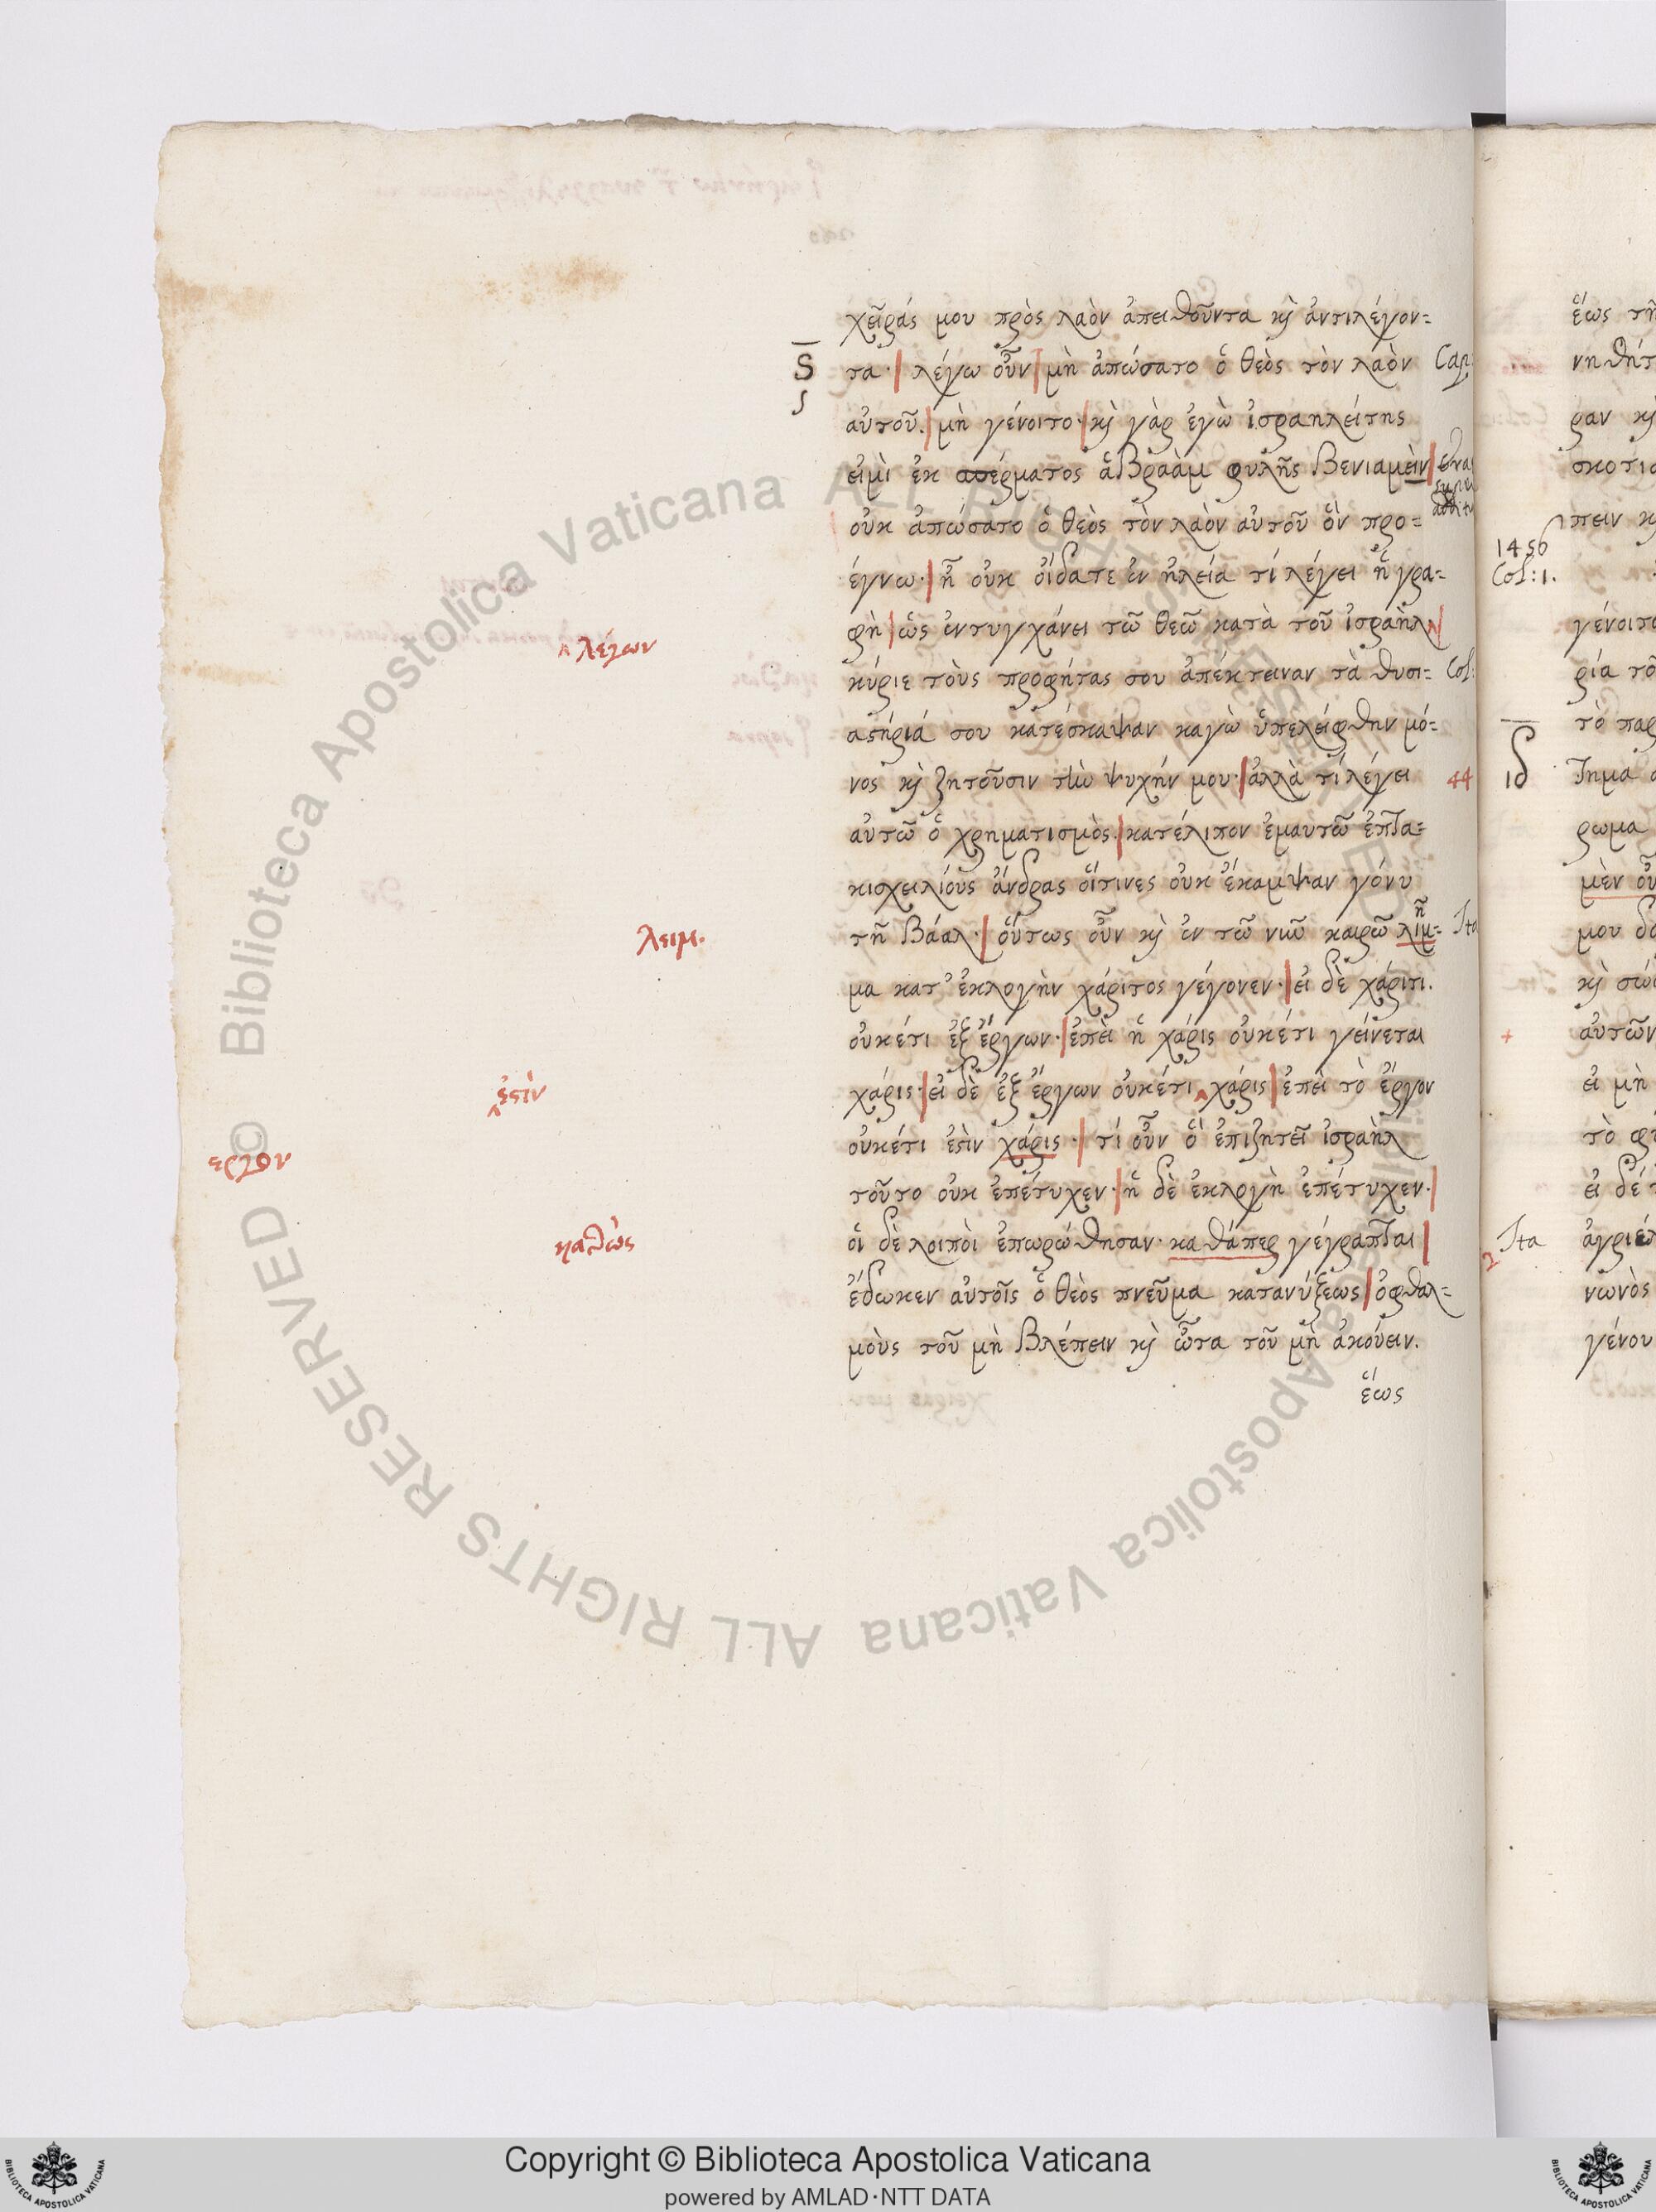 χεῖράς μου πρὸς λαὸν ἀπειθοῦντα κὶ ἀντιλέγον=
τα· | λέγω οὖν | μὴ ἀπώσατο ὁ θεὸς τὸν λαὸν
αὐτοῦ. | μὴ γένοιτο· | κὶ γὰρ ἐγὼ ἰσραηλείτης
εἰμὶ ἐκ σπέρματος ἀβραὰμ φυλῆς Βενιαμεὶν |
οὐκ ἀπώσατο ὁ θεὸς τὸν λαὸν αὐτοῦ ὃν προ=
έγνω· | ἢ οὐκ οἴδατε ἐν ἠλεία τί λέγει ἡ γρα=
φὴ | ὡς ἐντυγχάνει τῶ θεῶ κατὰ τοῦ ἰσραὴλ
κύριε τοὺς προφήτας σου ἀπέκτειναν τὰ θυσι=
αστήριά σου κατέσκαψαν καγὼ ὑπελείφθην μό=
νος κὶ ζητοῦσιν τὴν ψυχήν μου· | ἀλλὰ τί λέγει
αὐτῶ ὁ χρηματισμὸς. | κατέλιπον ἐμαυτῶ ἑπτα=
κισχειλίους ἄνδρας οἵτινες οὐκ ἔκαμψαν γόνυ
τῆ Βάαλ· | οὕτως οὖν κὶ ἐν τῶ νῦν καιρῶ λῖμ=
μα κατ' ἐκλογὴν χάριτος γέγονεν· | εἰ δὲ χάριτι.
οὐκέτι ἐξ ἔργων· | ἐπεὶ ἡ χάρις οὐκέτι γείνεται
χάρις· | εἰ δὲ ἐξ ἔργων οὐκέτι ‸ χάρις | ἐπεὶ τὸ ἔργον
οὐκέτι ἐστὶν χάρις· | τί οὖν ὃ ἐπιζητεῖ ἰσραὴλ
τοῦτο οὐκ ἐπέτυχεν· | ἡ δὲ ἐκλογὴ ἐπέτυχεν· |
οἱ δὲ λοιποὶ ἐπωρώθησαν· καθάπερ γέγραπται |
ἔδωκεν αὐτοῖς ὁ θεὸς πνεῦμα κατανύξεως | ὀφθαλ=
μοὺς τοῦ μὴ βλέπειν κὶ ὦτα τοῦ μὴ ἀκούειν.
ἕως
‸ λέγων
λειμ.
‸ ἐστὶν
εργον
καθὼς
44
1456
Col: 1.
Ita
Copyright © Biblioteca Apostolica Vaticana
powered by AMLAD·NTT DATA
© Biblioteca Apostolica Vaticana ALL RIGHTS RESERVED